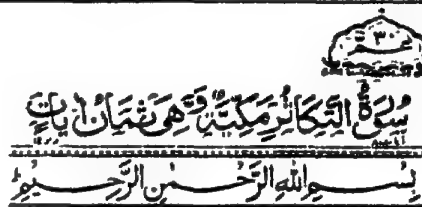 عم ٣٠
سُوْرَةُ التَّكَاثُرِ مَكِّيَّةٌ وَّهِيَ ثَمَانُ اٰيَاتٍ
بِسْمِ اللهِ الرَّحْمٰنِ الرَّحِيْمِ